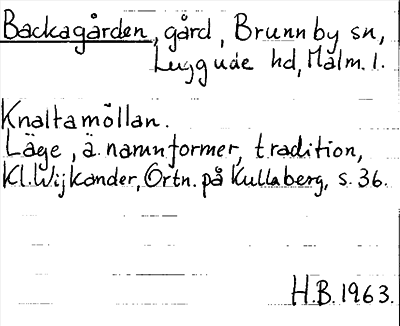 Backagården, gård, Brunnby sn,
Luggude hd, Malm. l.
Knaltamöllan.
Läge, ä. namnformer, tradition,
Kl. Wijkander, Ortn. på Kullaberg, s. 36.
H.B. 1963.